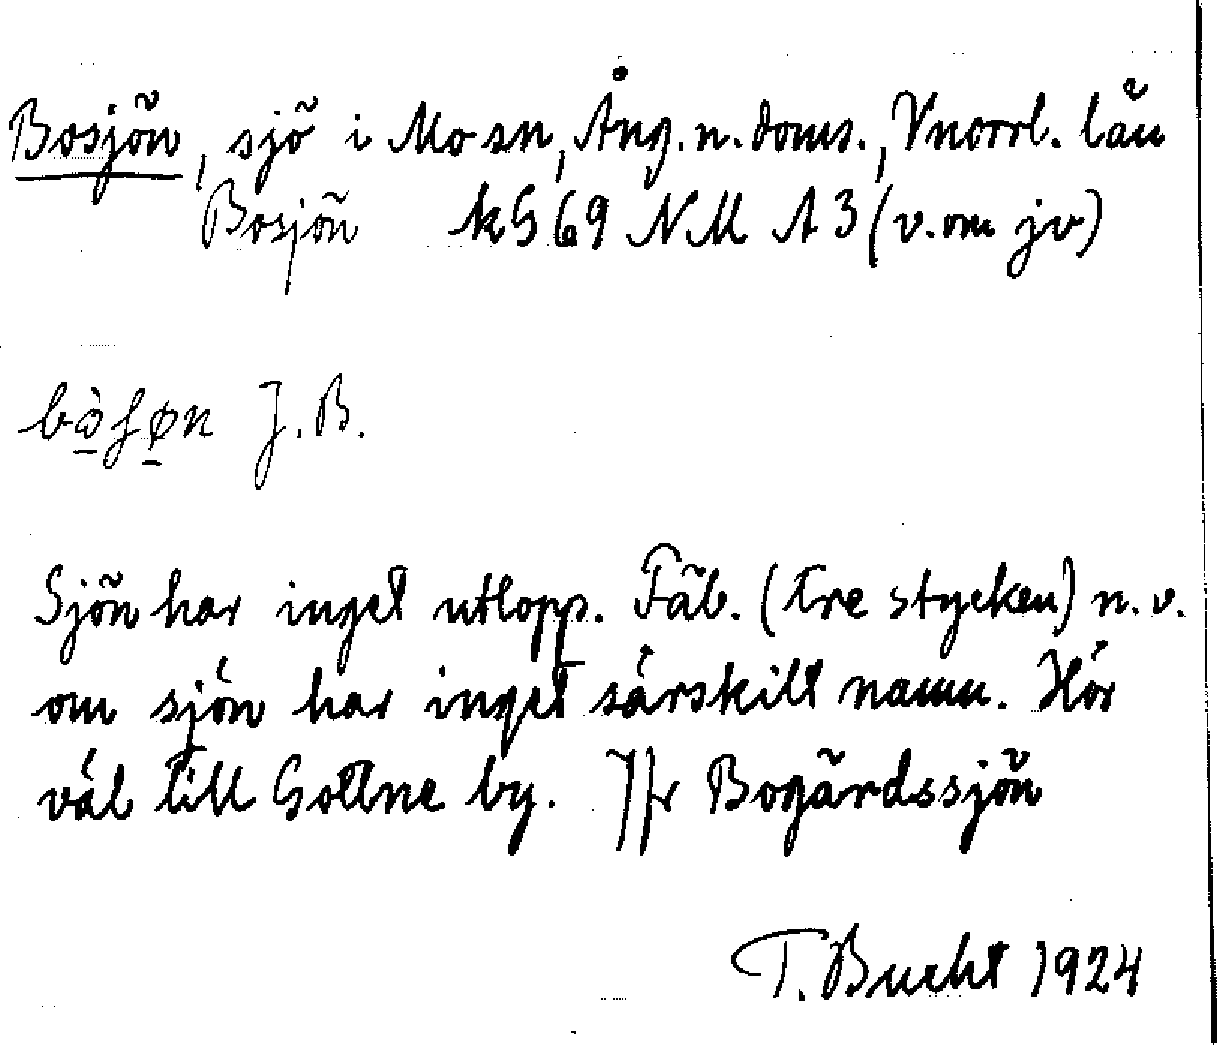 Bosjön, sjö i Mo sn, Ång. n. doms., Vnorrl. län
Bosjön kG 69 NM A 3 (v. om jv)
J. B.
Sjön har inget utlopp. Fäb. (tre stycken) n. v.
om sjön har inget särskilt namn. Hör
väl till Gottne by. Jfr Bogårdssjön
T. Bucht 1924